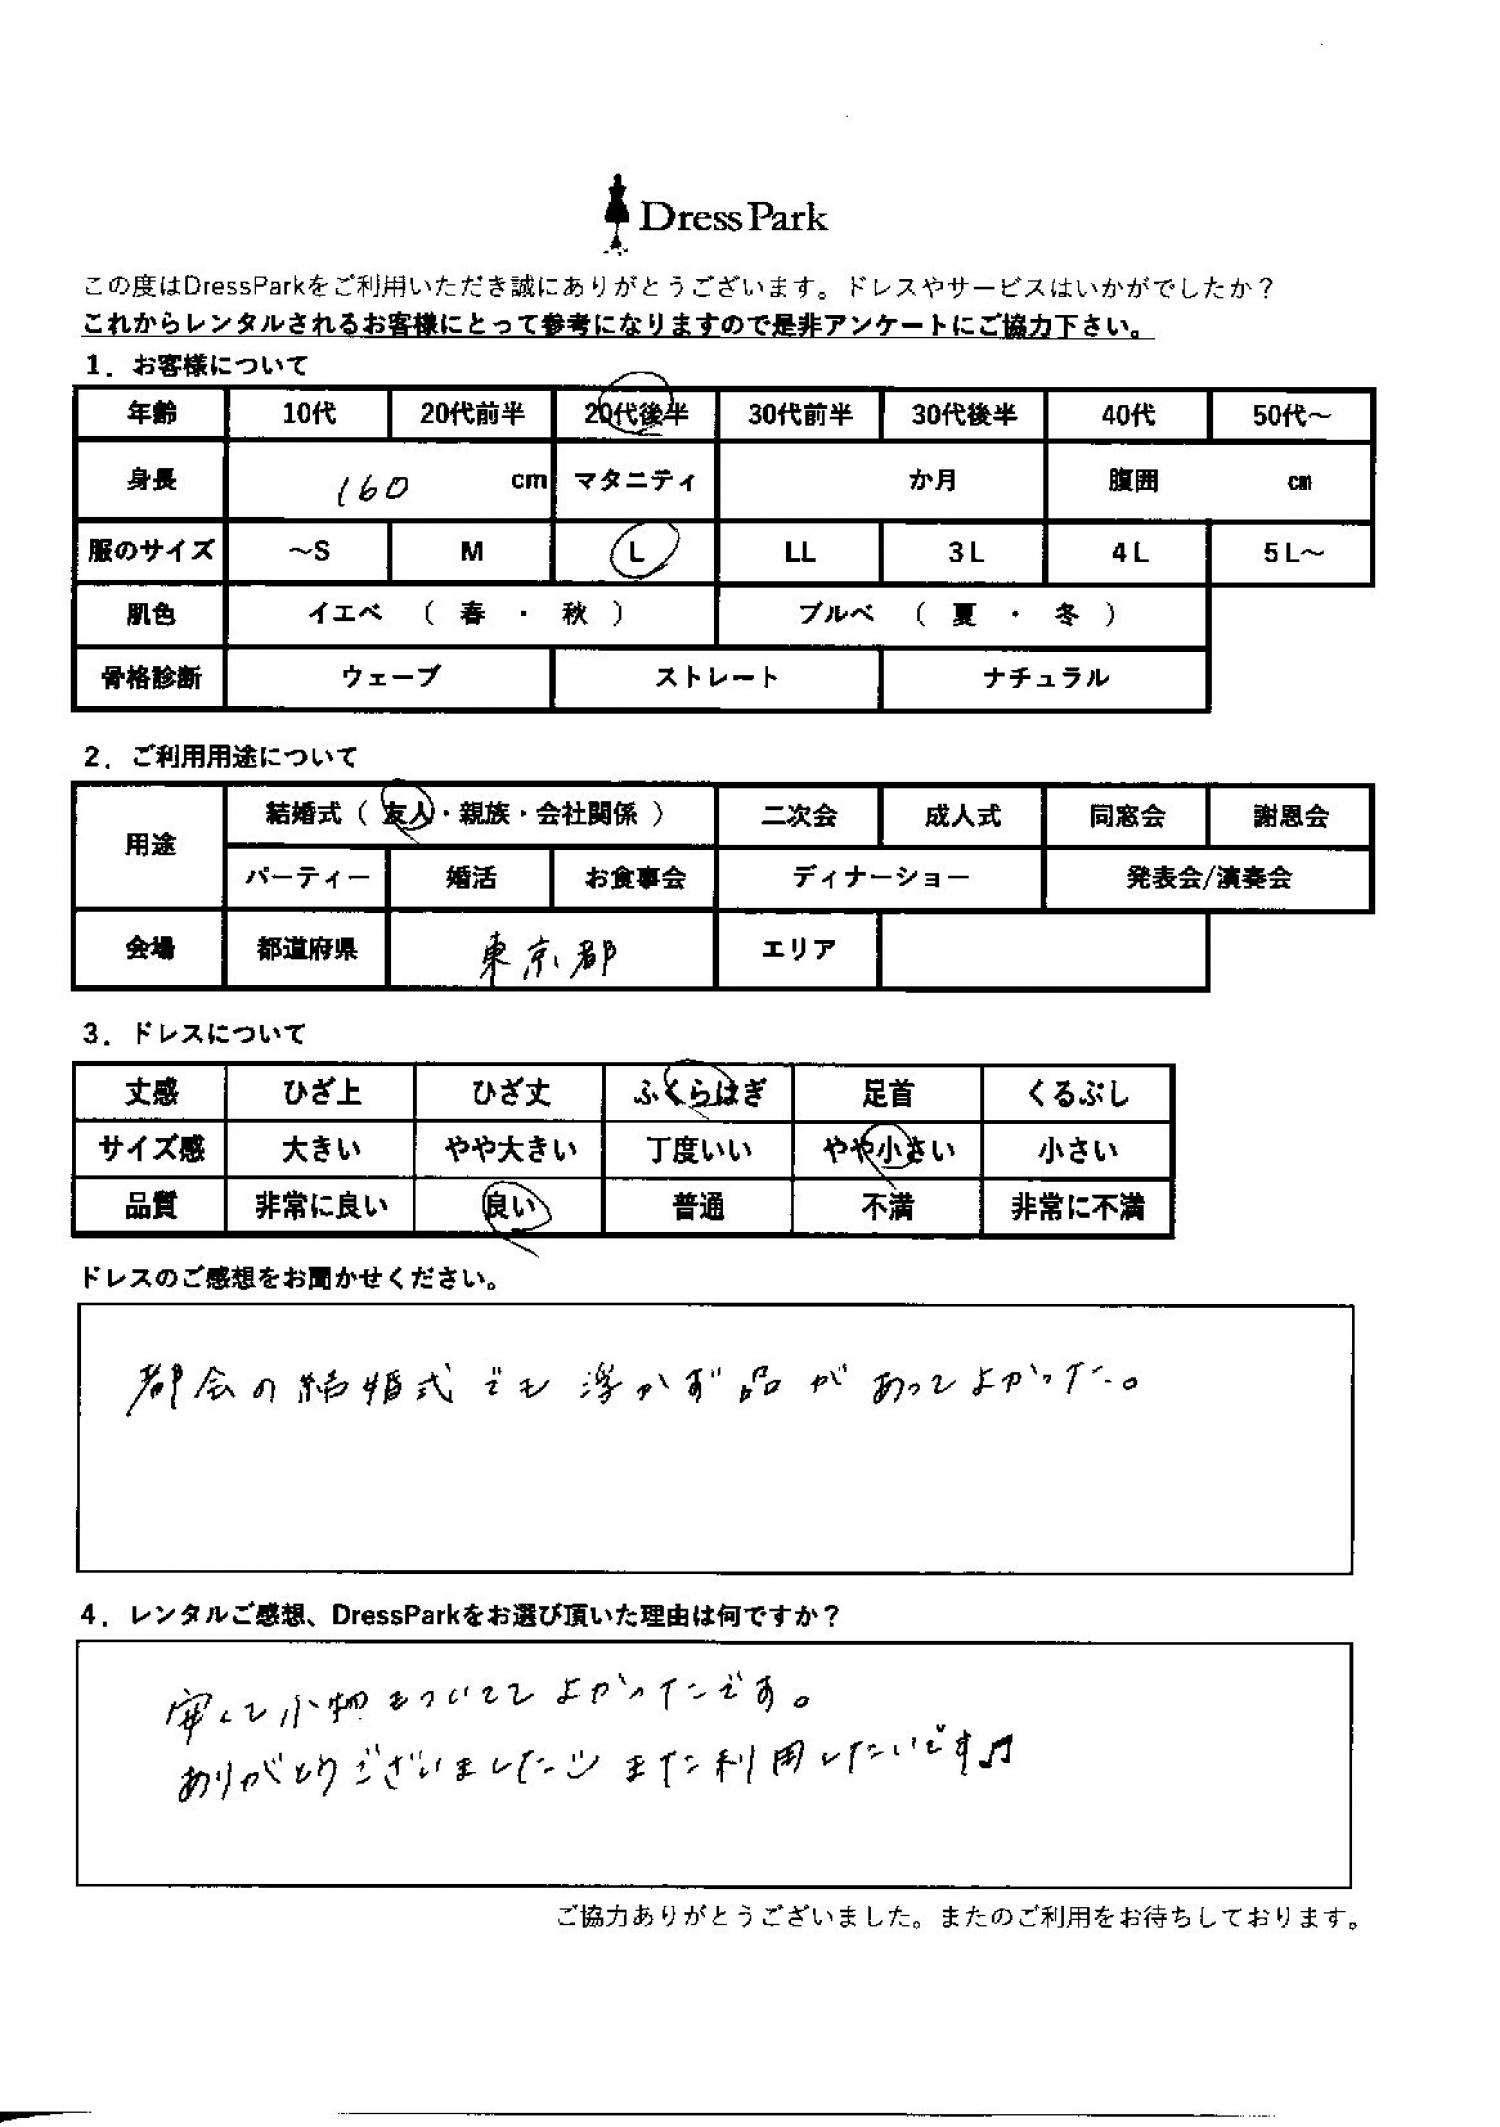 Dress Park
この度はDressParkをご利用いただき誠にありがとうございます。ドレスやサービスはいかがでしたか？
これからレンタルされるお客様にとって参考になりますので是非アンケートにご協力下さい。
1．お客様について
年齢 10代 20代前半 20代後半 30代前半 30代後半 40代 50代～
身長 160 cm マタニティ か月 腹囲 cm
服のサイズ ～S M L LL 3L 4L 5L～
肌色 イエベ （ 春 ・ 秋 ） ブルベ （ 夏 ・ 冬 ）
骨格診断 ウェーブ ストレート ナチュラル
2．ご利用用途について
用途 結婚式（ 友人・親族・会社関係 ） 二次会 成人式 同窓会 謝恩会
パーティー 婚活 お食事会 ディナーショー 発表会/演奏会
会場 都道府県 東京都 エリア
3．ドレスについて
丈感 ひざ上 ひざ丈 ふくらはぎ 足首 くるぶし
サイズ感 大きい やや大きい 丁度いい やや小さい 小さい
品質 非常に良い 良い 普通 不満 非常に不満
ドレスのご感想をお聞かせください。
都会の結婚式でも浮かず品があってよかった。
4．レンタルご感想、DressParkをお選び頂いた理由は何ですか？
安くて小物もついててよかったです。
ありがとうございました また利用したいです♪
ご協力ありがとうございました。またのご利用をお待ちしております。